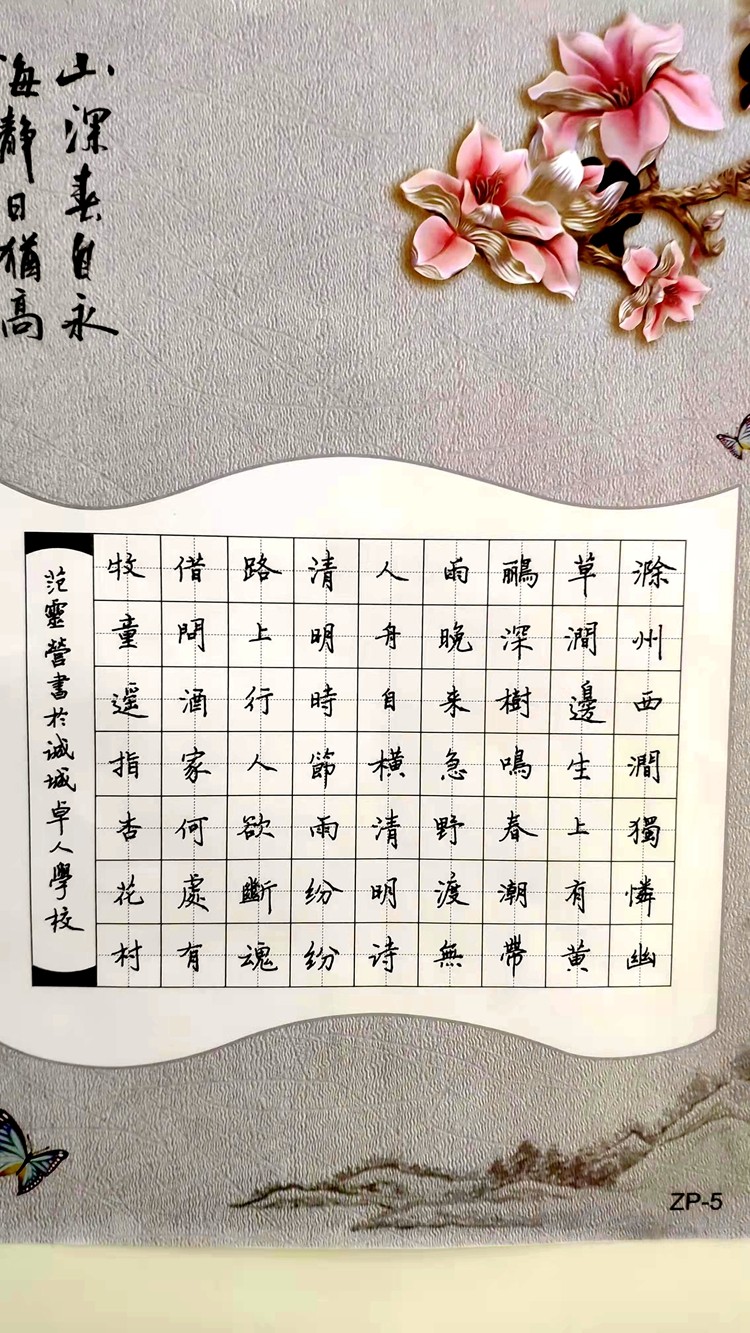 山深春自永
海静日猶高
滁州西澗獨憐幽
草澗邊生上有黄
鸝深樹鳴春潮帶
雨晚来急野渡無
人舟自横清明诗
清明時節雨纷纷
路上行人欲斷魂
借問酒家何處有
牧童遥指杏花村
范靈營書於诚城卓人學校
ZP-5